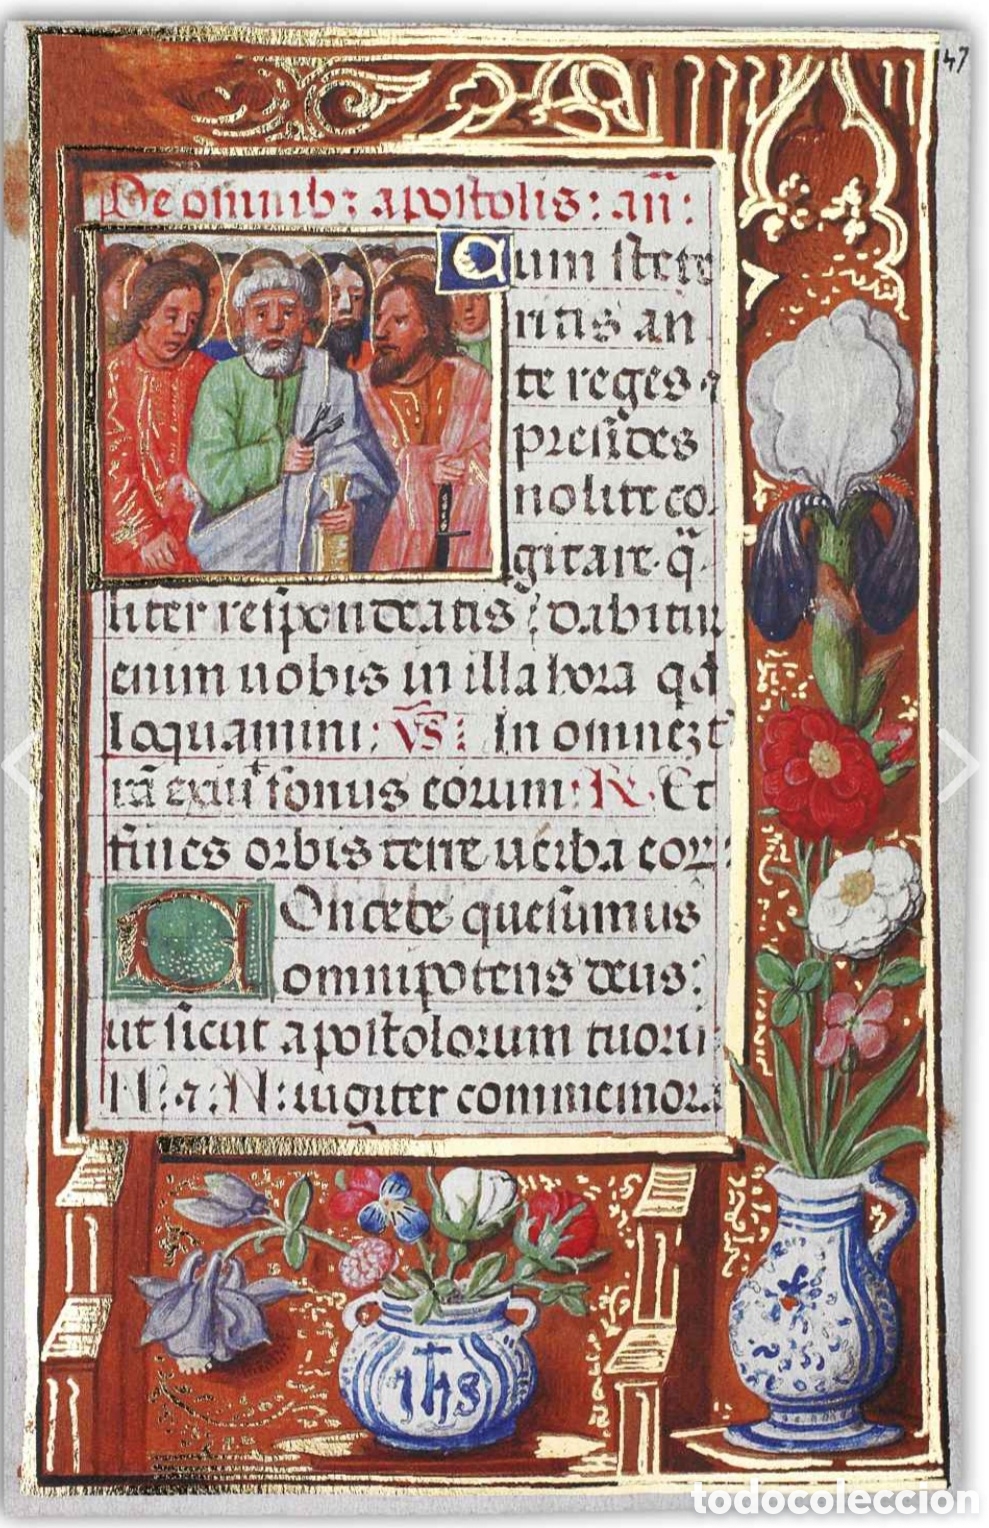 47
De omnibꝫ apostolis: añ:
Cum stete
ritis an
te reges ⁊
presides
nolite co
gitare. q̃
liter respondeatis: dabitur
enim uobis in illa hora qd
loquamini: V̄S: In omnez t
rā exiuit sonus eorum: R. Et
fines orbis terre uerba eoꝝ:
COncede quesumus
omnipotens deus:
ut sicut apostolorum tuorū
N: ⁊: N: iugiter commemora
IHS
todocoleccion